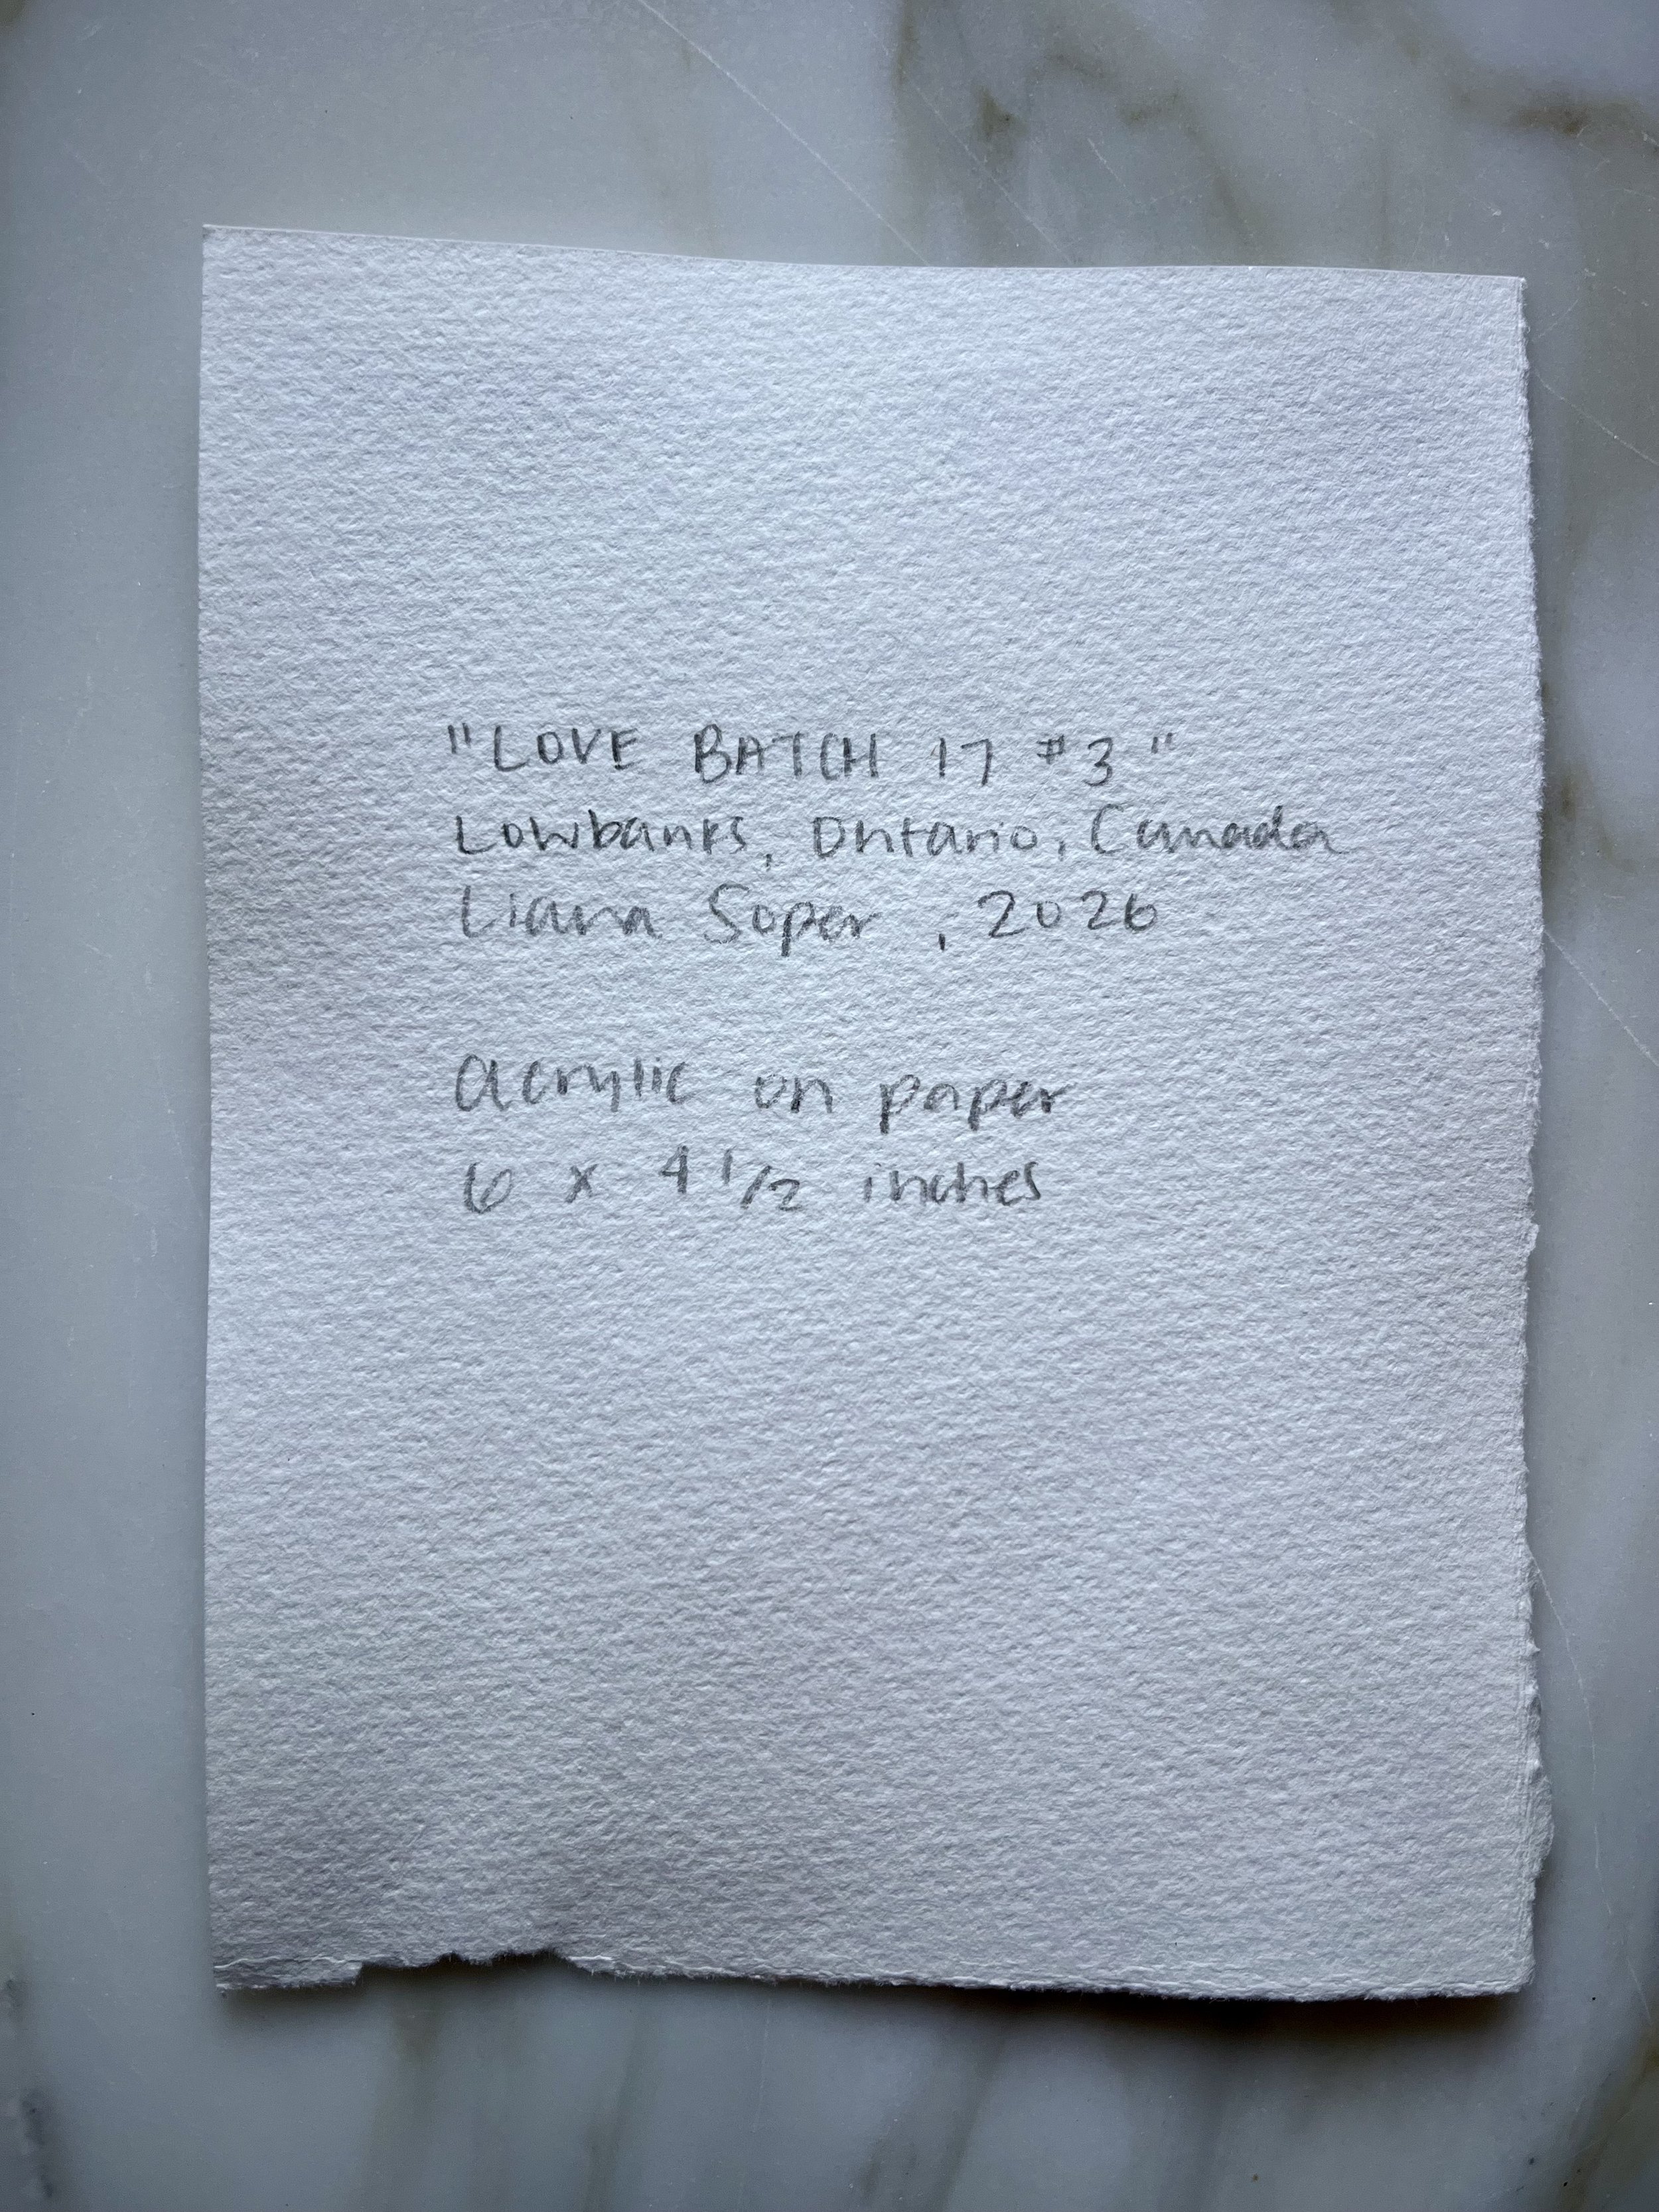 "LOVE BATCH 17 #3"
Lowbanks, Ontario, Canada
Liana Soper, 2026
acrylic on paper
6 x 4 1/2 inches